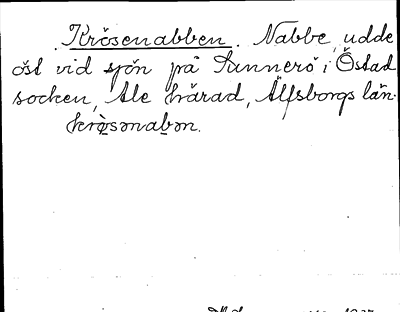 Krösenabben. Nabbe, udde
öst vid sjön på Sunnerö i Östad
socken, Ale härad, Älfsborgs län.
krø̀sənabən.